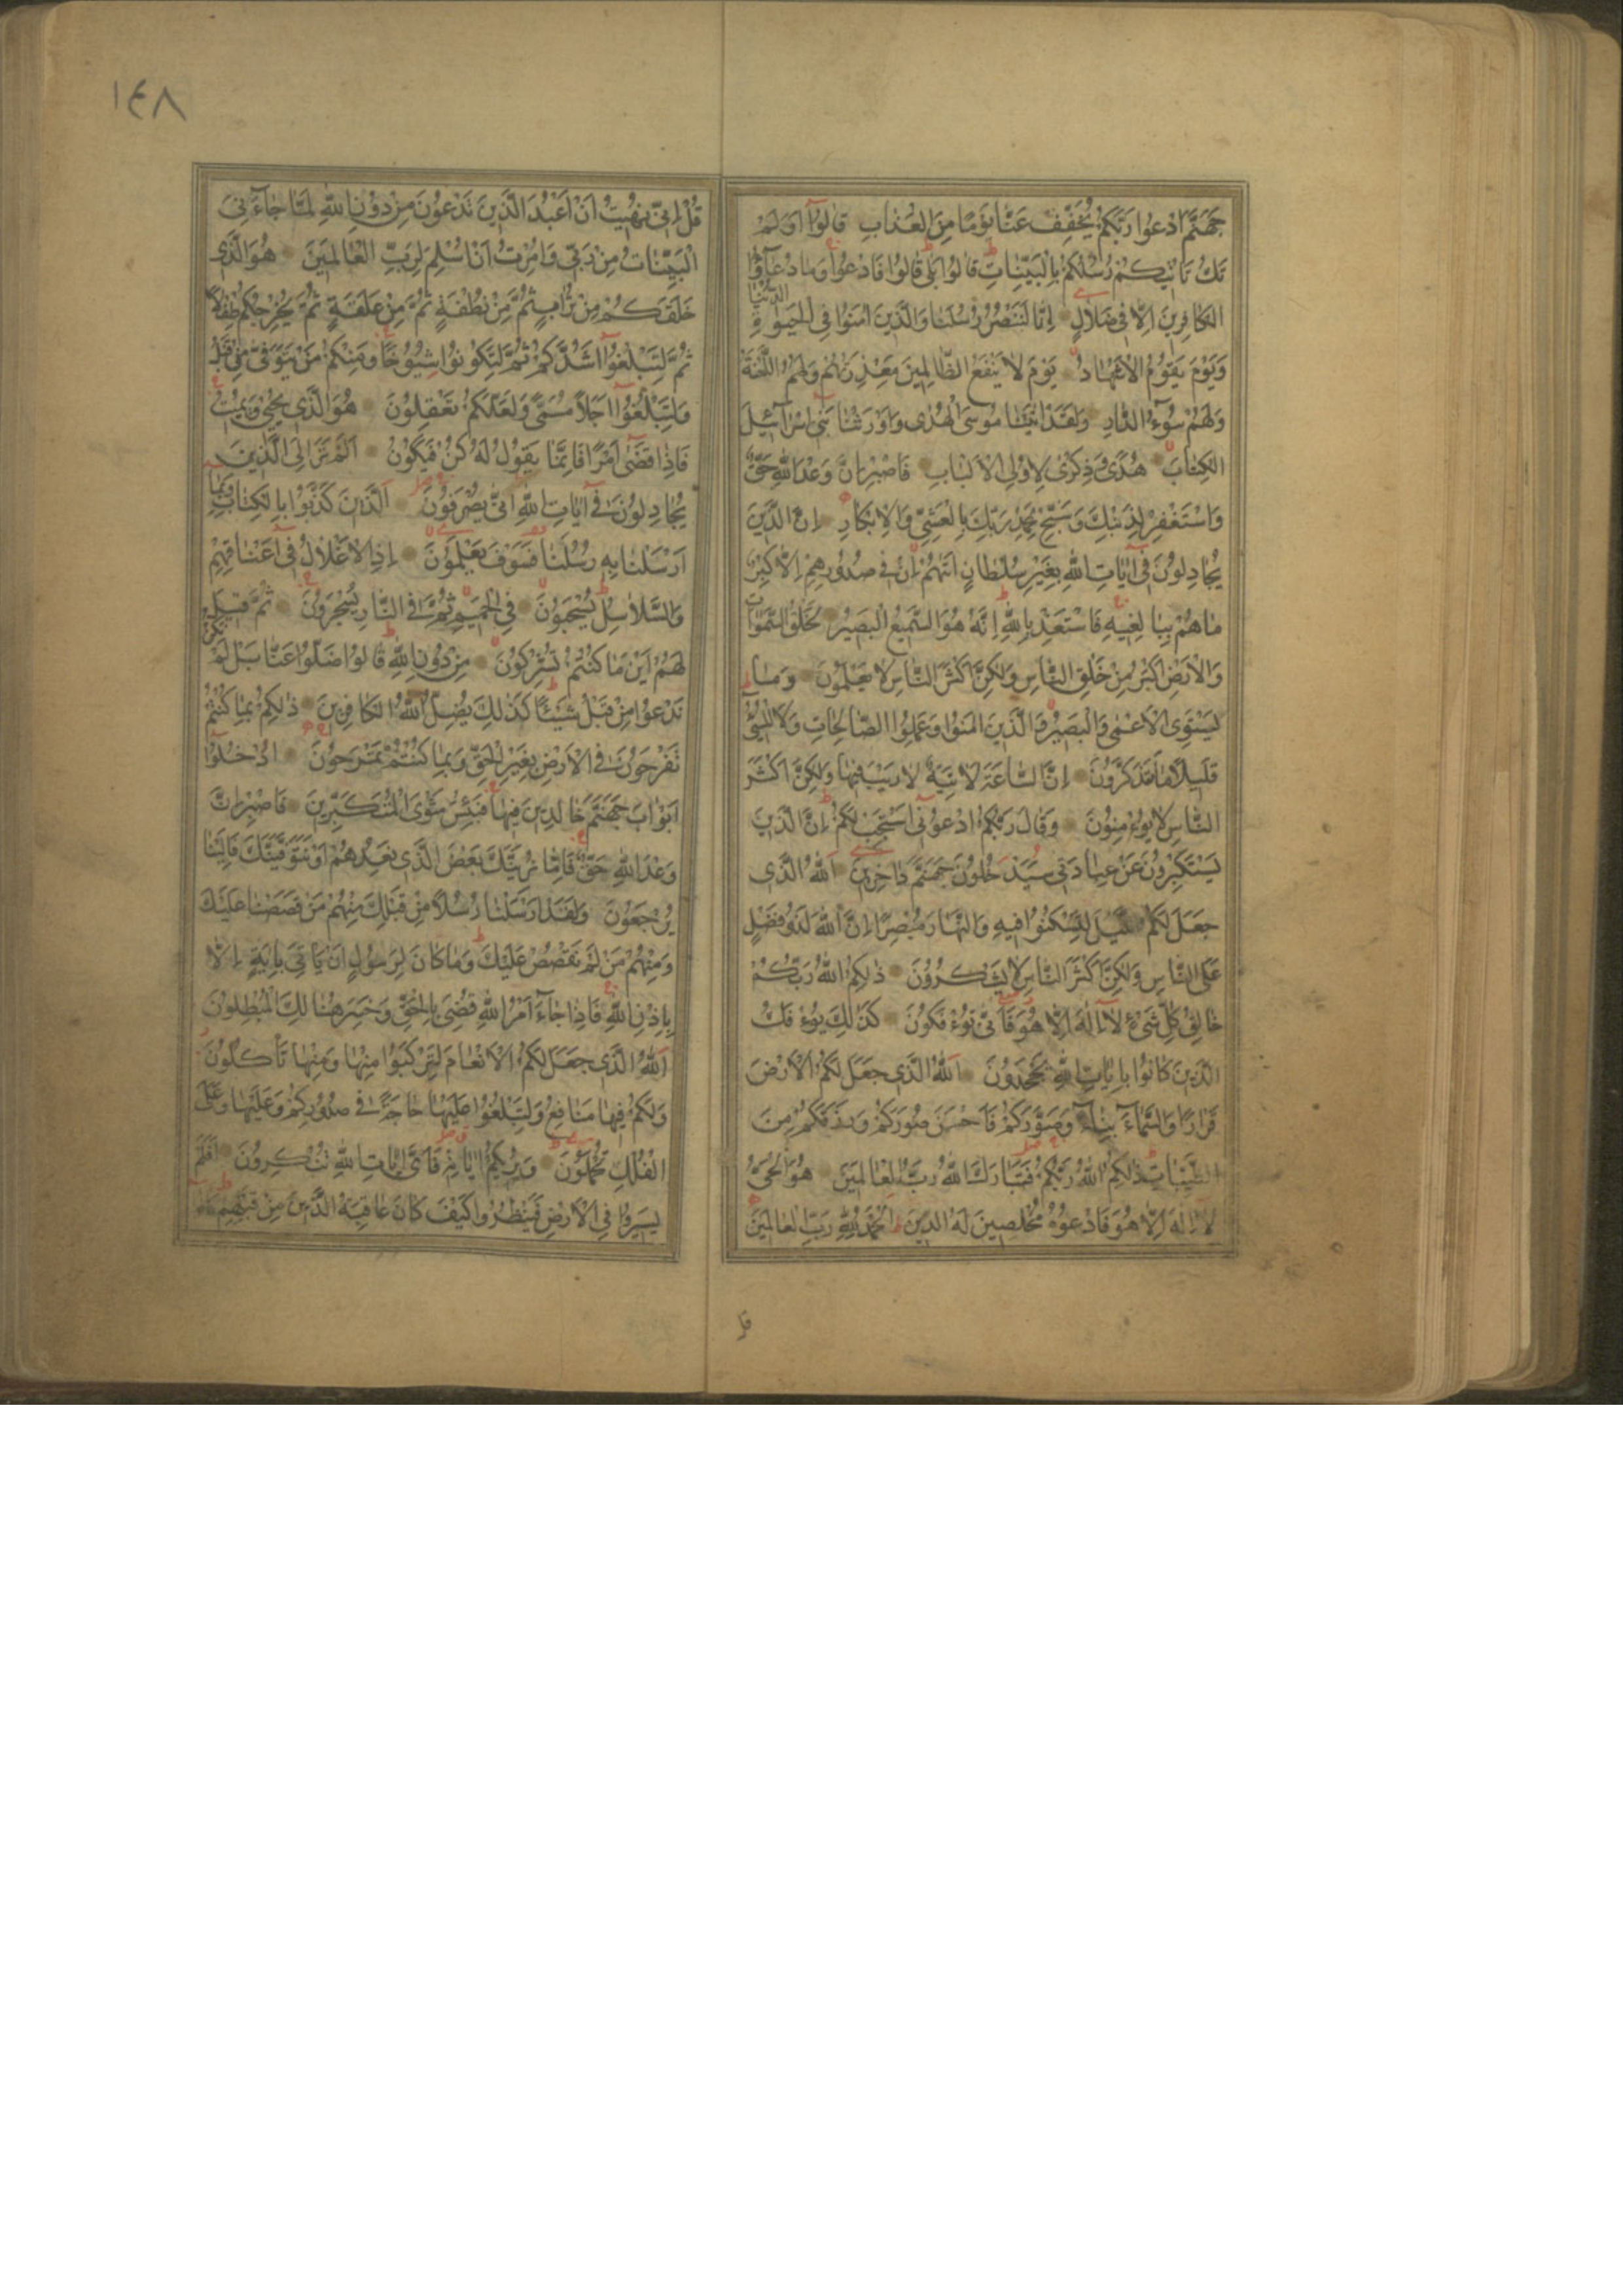 جَهَنَّمَ ادْعُوا رَبَّكُمْ يُخَفِّفْ عَنَّا يَوْمًا مِنَ الْعَذَابِ قَالُوا اَوَلَمْ
تَكُ تَأْتِيكُمْ رُسُلُكُمْ بِالْبَيِّنَاتِ قَالُوا بَلٰى قَالُوا فَادْعُوا وَمَا دُعَآؤُا
الْكَافِرِينَ اِلَّا فِى ضَلَالٍ اِنَّا لَنَنْصُرُ رُسُلَنَا وَالَّذِينَ اٰمَنُوا فِى الْحَيٰوةِ الدُّنْيَا
وَيَوْمَ يَقُومُ الْاَشْهَادُ يَوْمَ لَا يَنْفَعُ الظَّالِمِينَ مَعْذِرَتُهُمْ وَلَهُمُ اللَّعْنَةُ
وَلَهُمْ سُوٓءُ الدَّارِ وَلَقَدْ اٰتَيْنَا مُوسَى الْهُدٰى وَاَوْرَثْنَا بَنِىٓ اِسْرَآئِيلَ
الْكِتَابَ هُدًى وَذِكْرٰى لِاُولِى الْاَلْبَابِ فَاصْبِرْ اِنَّ وَعْدَ اللّٰهِ حَقٌّ
وَاسْتَغْفِرْ لِذَنْبِكَ وَسَبِّحْ بِحَمْدِ رَبِّكَ بِالْعَشِىِّ وَالْاِبْكَارِ اِنَّ الَّذِينَ
يُجَادِلُونَ فِىٓ اٰيَاتِ اللّٰهِ بِغَيْرِ سُلْطَانٍ اَتٰهُمْ اِنْ فِى صُدُورِهِمْ اِلَّا كِبْرٌ
مَا هُمْ بِبَالِغِيهِ فَاسْتَعِذْ بِاللّٰهِ اِنَّهُ هُوَ السَّمِيعُ الْبَصِيرُ لَخَلْقُ السَّمٰوَاتِ
وَالْاَرْضِ اَكْبَرُ مِنْ خَلْقِ النَّاسِ وَلٰكِنَّ اَكْثَرَ النَّاسِ لَا يَعْلَمُونَ وَمَا
يَسْتَوِى الْاَعْمٰى وَالْبَصِيرُ وَالَّذِينَ اٰمَنُوا وَعَمِلُوا الصَّالِحَاتِ وَلَا الْمُسِىٓءُ
قَلِيلًا مَا تَتَذَكَّرُونَ اِنَّ السَّاعَةَ لَاٰتِيَةٌ لَا رَيْبَ فِيهَا وَلٰكِنَّ اَكْثَرَ
النَّاسِ لَا يُؤْمِنُونَ وَقَالَ رَبُّكُمُ ادْعُونِىٓ اَسْتَجِبْ لَكُمْ اِنَّ الَّذِينَ
يَسْتَكْبِرُونَ عَنْ عِبَادَتِى سَيَدْخُلُونَ جَهَنَّمَ دَاخِرِينَ اَللّٰهُ الَّذِى
جَعَلَ لَكُمُ الَّيْلَ لِتَسْكُنُوا فِيهِ وَالنَّهَارَ مُبْصِرًا اِنَّ اللّٰهَ لَذُو فَضْلٍ
عَلَى النَّاسِ وَلٰكِنَّ اَكْثَرَ النَّاسِ لَا يَشْكُرُونَ ذٰلِكُمُ اللّٰهُ رَبُّكُمْ
خَالِقُ كُلِّ شَىْءٍ لَآ اِلٰهَ اِلَّا هُوَ فَاَنّٰى تُؤْفَكُونَ كَذٰلِكَ يُؤْفَكُ
الَّذِينَ كَانُوا بِاٰيَاتِ اللّٰهِ يَجْحَدُونَ اَللّٰهُ الَّذِى جَعَلَ لَكُمُ الْاَرْضَ
قَرَارًا وَالسَّمَآءَ بِنَآءً وَصَوَّرَكُمْ فَاَحْسَنَ صُوَرَكُمْ وَرَزَقَكُمْ مِنَ
الطَّيِّبَاتِ ذٰلِكُمُ اللّٰهُ رَبُّكُمْ فَتَبَارَكَ اللّٰهُ رَبُّ الْعَالَمِينَ هُوَ الْحَىُّ
لَآ اِلٰهَ اِلَّا هُوَ فَادْعُوهُ مُخْلِصِينَ لَهُ الدِّينَ اَلْحَمْدُ لِلّٰهِ رَبِّ الْعَالَمِينَ
قل
١٤٨
قُلْ اِنِّى نُهِيتُ اَنْ اَعْبُدَ الَّذِينَ تَدْعُونَ مِنْ دُونِ اللّٰهِ لَمَّا جَآءَنِىَ
الْبَيِّنَاتُ مِنْ رَبِّى وَاُمِرْتُ اَنْ اُسْلِمَ لِرَبِّ الْعَالَمِينَ هُوَ الَّذِى
خَلَقَكُمْ مِنْ تُرَابٍ ثُمَّ مِنْ نُطْفَةٍ ثُمَّ مِنْ عَلَقَةٍ ثُمَّ يُخْرِجُكُمْ طِفْلًا
ثُمَّ لِتَبْلُغُوٓا اَشُدَّكُمْ ثُمَّ لِتَكُونُوا شُيُوخًا وَمِنْكُمْ مَنْ يُتَوَفّٰى مِنْ قَبْلُ
وَلِتَبْلُغُوٓا اَجَلًا مُسَمًّى وَلَعَلَّكُمْ تَعْقِلُونَ هُوَ الَّذِى يُحْيِى وَيُمِيتُ
فَاِذَا قَضٰىٓ اَمْرًا فَاِنَّمَا يَقُولُ لَهُ كُنْ فَيَكُونُ اَلَمْ تَرَ اِلَى الَّذِينَ
يُجَادِلُونَ فِىٓ اٰيَاتِ اللّٰهِ اَنّٰى يُصْرَفُونَ اَلَّذِينَ كَذَّبُوا بِالْكِتَابِ وَبِمَآ
اَرْسَلْنَا بِهِ رُسُلَنَا فَسَوْفَ يَعْلَمُونَ اِذِ الْاَغْلَالُ فِىٓ اَعْنَاقِهِمْ
وَالسَّلَاسِلُ يُسْحَبُونَ فِى الْحَمِيمِ ثُمَّ فِى النَّارِ يُسْجَرُونَ ثُمَّ قِيلَ
لَهُمْ اَيْنَ مَا كُنْتُمْ تُشْرِكُونَ مِنْ دُونِ اللّٰهِ قَالُوا ضَلُّوا عَنَّا بَلْ لَمْ نَكُنْ
نَدْعُوا مِنْ قَبْلُ شَيْئًا كَذٰلِكَ يُضِلُّ اللّٰهُ الْكَافِرِينَ ذٰلِكُمْ بِمَا كُنْتُمْ
تَفْرَحُونَ فِى الْاَرْضِ بِغَيْرِ الْحَقِّ وَبِمَا كُنْتُمْ تَمْرَحُونَ اُدْخُلُوٓا
اَبْوَابَ جَهَنَّمَ خَالِدِينَ فِيهَا فَبِئْسَ مَثْوَى الْمُتَكَبِّرِينَ فَاصْبِرْ اِنَّ
وَعْدَ اللّٰهِ حَقٌّ فَاِمَّا نُرِيَنَّكَ بَعْضَ الَّذِى نَعِدُهُمْ اَوْ نَتَوَفَّيَنَّكَ فَاِلَيْنَا
يُرْجَعُونَ وَلَقَدْ اَرْسَلْنَا رُسُلًا مِنْ قَبْلِكَ مِنْهُمْ مَنْ قَصَصْنَا عَلَيْكَ
وَمِنْهُمْ مَنْ لَمْ نَقْصُصْ عَلَيْكَ وَمَا كَانَ لِرَسُولٍ اَنْ يَأْتِىَ بِاٰيَةٍ اِلَّا
بِاِذْنِ اللّٰهِ فَاِذَا جَآءَ اَمْرُ اللّٰهِ قُضِىَ بِالْحَقِّ وَخَسِرَ هُنَالِكَ الْمُبْطِلُونَ
اَللّٰهُ الَّذِى جَعَلَ لَكُمُ الْاَنْعَامَ لِتَرْكَبُوا مِنْهَا وَمِنْهَا تَأْكُلُونَ
وَلَكُمْ فِيهَا مَنَافِعُ وَلِتَبْلُغُوا عَلَيْهَا حَاجَةً فِى صُدُورِكُمْ وَعَلَيْهَا وَعَلَى
الْفُلْكِ تُحْمَلُونَ وَيُرِيكُمْ اٰيَاتِهِ فَاَىَّ اٰيَاتِ اللّٰهِ تُنْكِرُونَ اَفَلَمْ
يَسِيرُوا فِى الْاَرْضِ فَيَنْظُرُوا كَيْفَ كَانَ عَاقِبَةُ الَّذِينَ مِنْ قَبْلِهِمْ كَانُوا